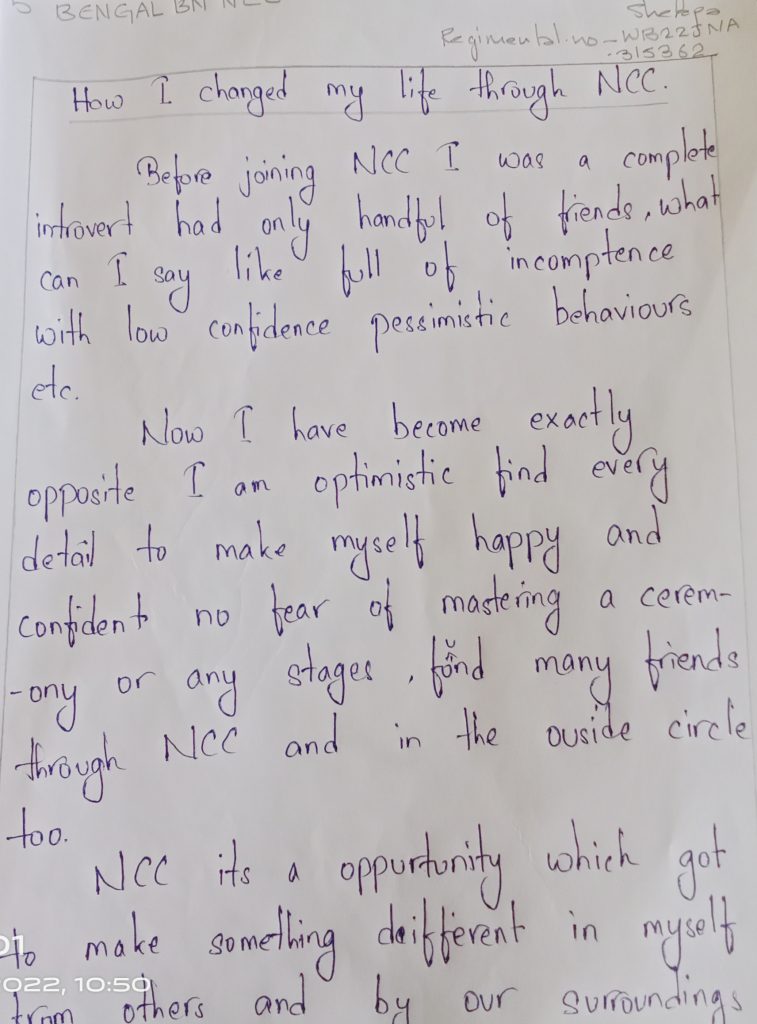 BENGAL BN NCC
Sherpa
Regimental.no - WB22JNA
315362
How I changed my life through NCC.
Before joining NCC I was a complete
introvert had only handful of friends, what
can I say like full of incomptence
with low confidence pessimistic behaviours
etc.
Now I have become exactly
opposite I am optimistic find every
detail to make myself happy and
confident no fear of mastering a cerem-
-ony or any stages, found many friends
through NCC and in the ouside circle
too.
NCC its a oppurtunity which got
to make something deifferent in myself
from others and by our surroundings
022, 10:50